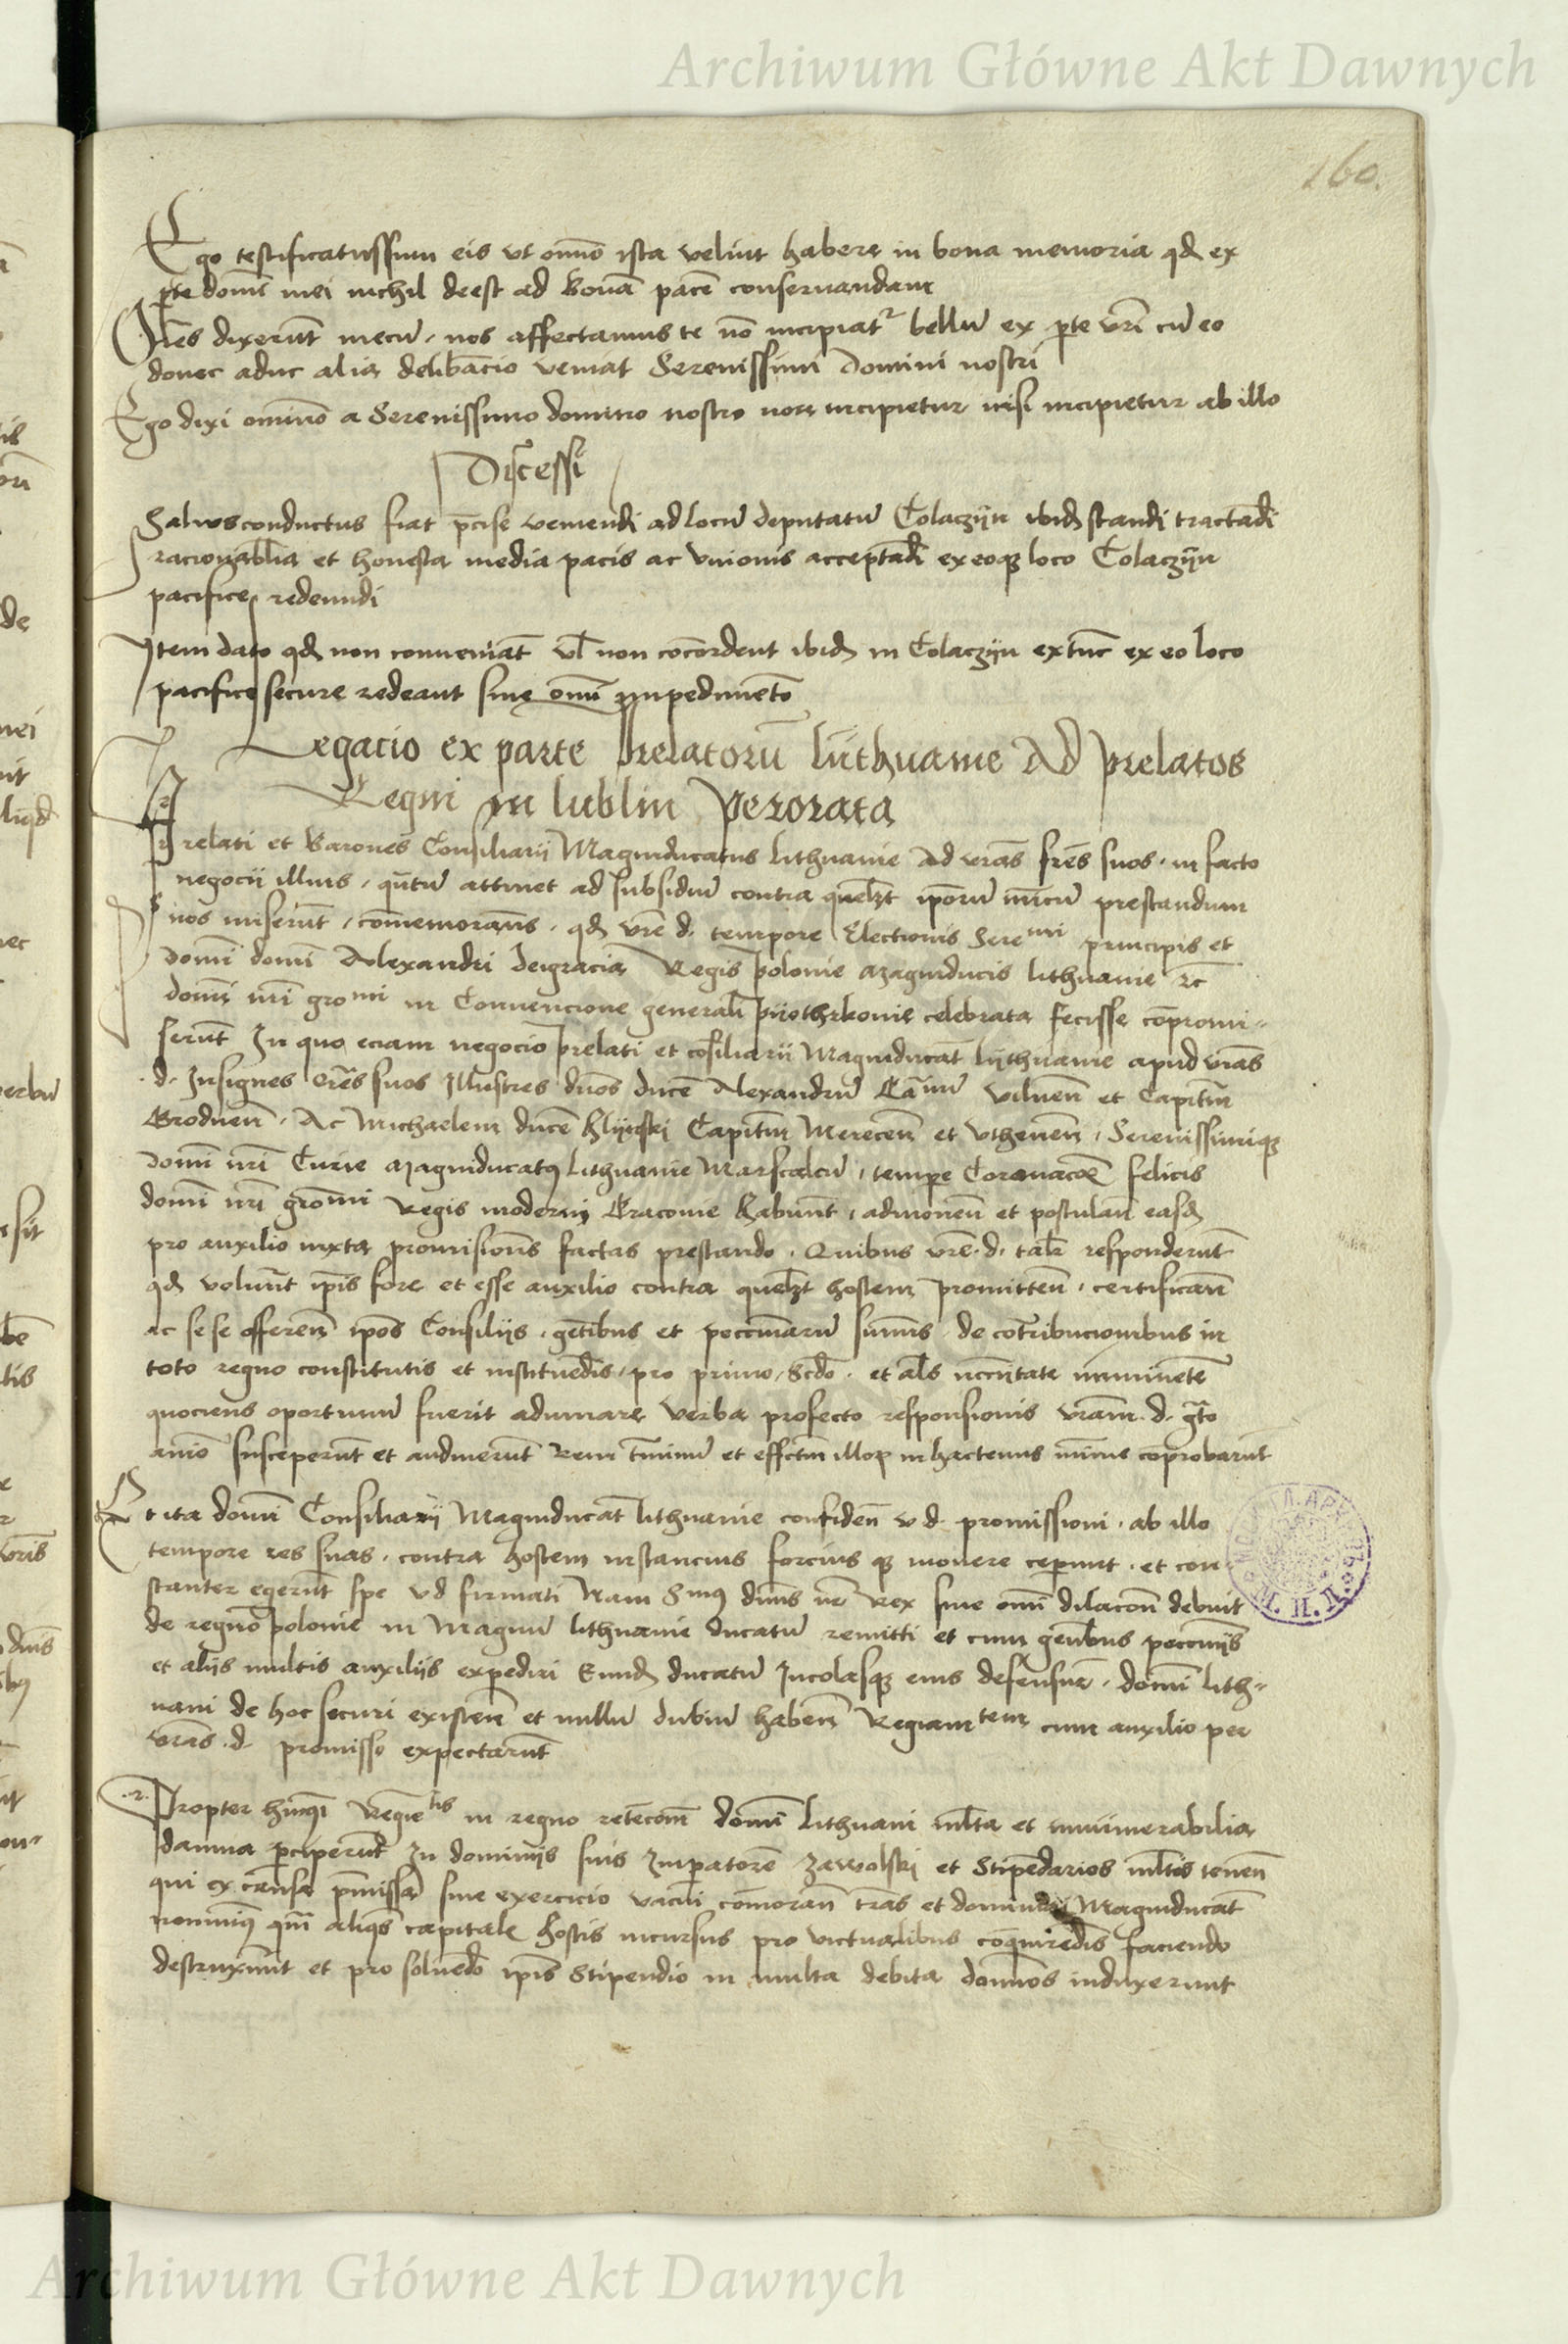 Archiwum Główne Akt Dawnych
160.
Ego testificatussum eis vt om̄o ista velint habere in bona memoria qd ex
pte domī mei nichil deest ad bonā pacē conseruandam
Om̄es dixerūt mecū, nos affectamus te nō incipiatr bellū ex pte vrī cū eo
donec aduc alia delibacio veniat Serenissimi Domini nostri
Ego dixi omīno a Serenissimo domino nostro non incipietur nisi incipietur ab illo
Discessi
Saluusconductus fiat pcise veniendi ad locū deputatū Colaczijn ibid standi tractādi
racionablia et honesta media pacis ac vnionis acceptādi ex eoqz loco Colaczijn
pacifice redeundi
Item dato qd non conueniāt vl non cōcordent ibid in Colaczijn extūc ex eo loco
pacifice secure redeant sine omī impedimēto
Legacio ex parte prelatorū lithuanie Ad prelatos
Regni in lublin perorata
Prelati et Barones Consiliarii Magniducatus lithuanie Ad vrās frēs suos in facto
negocii illius, qntū attinet ad subsidiū contra quēlzt ipōrū inīcū prestandum
nos miserūt, comemorans, qd vrē d. tempore Electionis Sere mi principis et
domī domī Alexandri deigracia Regis polonie magniducis lithuanie rc
domī nrī gromi in Conuencione generali pijothrkouie celebrata fecisse cōpromi-
serūt In quo eciam negocio prelati et cōsiliarii Magniducat lijthuanie apud vrās
d. Insignes Orēs suos Illustres dnōs ducē Alexandrū Cānum vilnen̄ et Capitm
Grodnen̄. Ac Michaelem ducē hlijnski Capitm Merecen̄ et vthenen̄, Serenissimiqz
domī nrī Curie magniducatus lithuanie Marscalcū, tempe Coronacōe felicis
domī nrī gromi Regis moderni Cracouie habuūt, admonen̄ et postulan̄ easd
pro auxilio iuxta promisiones factas prestando. Quibus vrē. d. talr responderūt
qd volunt ipīs fore et esse auxilio contra quēlzt hostem promitten̄, certifican̄
ac se se offeren̄ ipōs Consilijs, gētibus et peccuniarū sumis de cōtribucionibus in
toto regno constitutis et instituēdis, pro primo, scdo. et als nccītate imminēte
quociens oportunū fuerit adiuuare verba profecto responsionis vrām. d. grto
anīo susceperūt et audiuerūt Rem tmīnū et effctm illorum hactenus minus coprobarūt
Et ita domī Consiliarij Magniducat lithuanie confiden̄ v d. promissioni, ab illo
tempore res suas, contra hostem instancius forcius qz mouere ceperunt, et con
stanter egerūt spe v d firmati Nam Smus dnūs nr Rex sine omī dilacōn debuit
de regno polonie in Magnū lithuanie ducatū remitti et cum gentibus peccunijs
et alijs multis auxilijs expediri Eund ducatū Incolasqz eius defensur. domī lith-
uani de hoc securi existen̄ et nullū dubiū haben̄ Regiam tem cum auxilio per
vrās. d. promisso expectarūt
Propter hmōi Regie tis in regno retēcōm domī lithuani mlta et innumerabilia
damna pceperūt In dominijs suis Imperatorē zawolski et Stipēdarios mltis tenen̄
qui ex causa pmissa sine exercicio vacui cōmoran̄ trās et dominia Magniducat
nominus qm̄ aliqs capitale hostis incursus pro victualibus cōquiredis faciendo
destruxerūt et pro soluēdo ipīs Stipendio in multa debita domīos induxerunt
Archiwum Główne Akt Dawnych